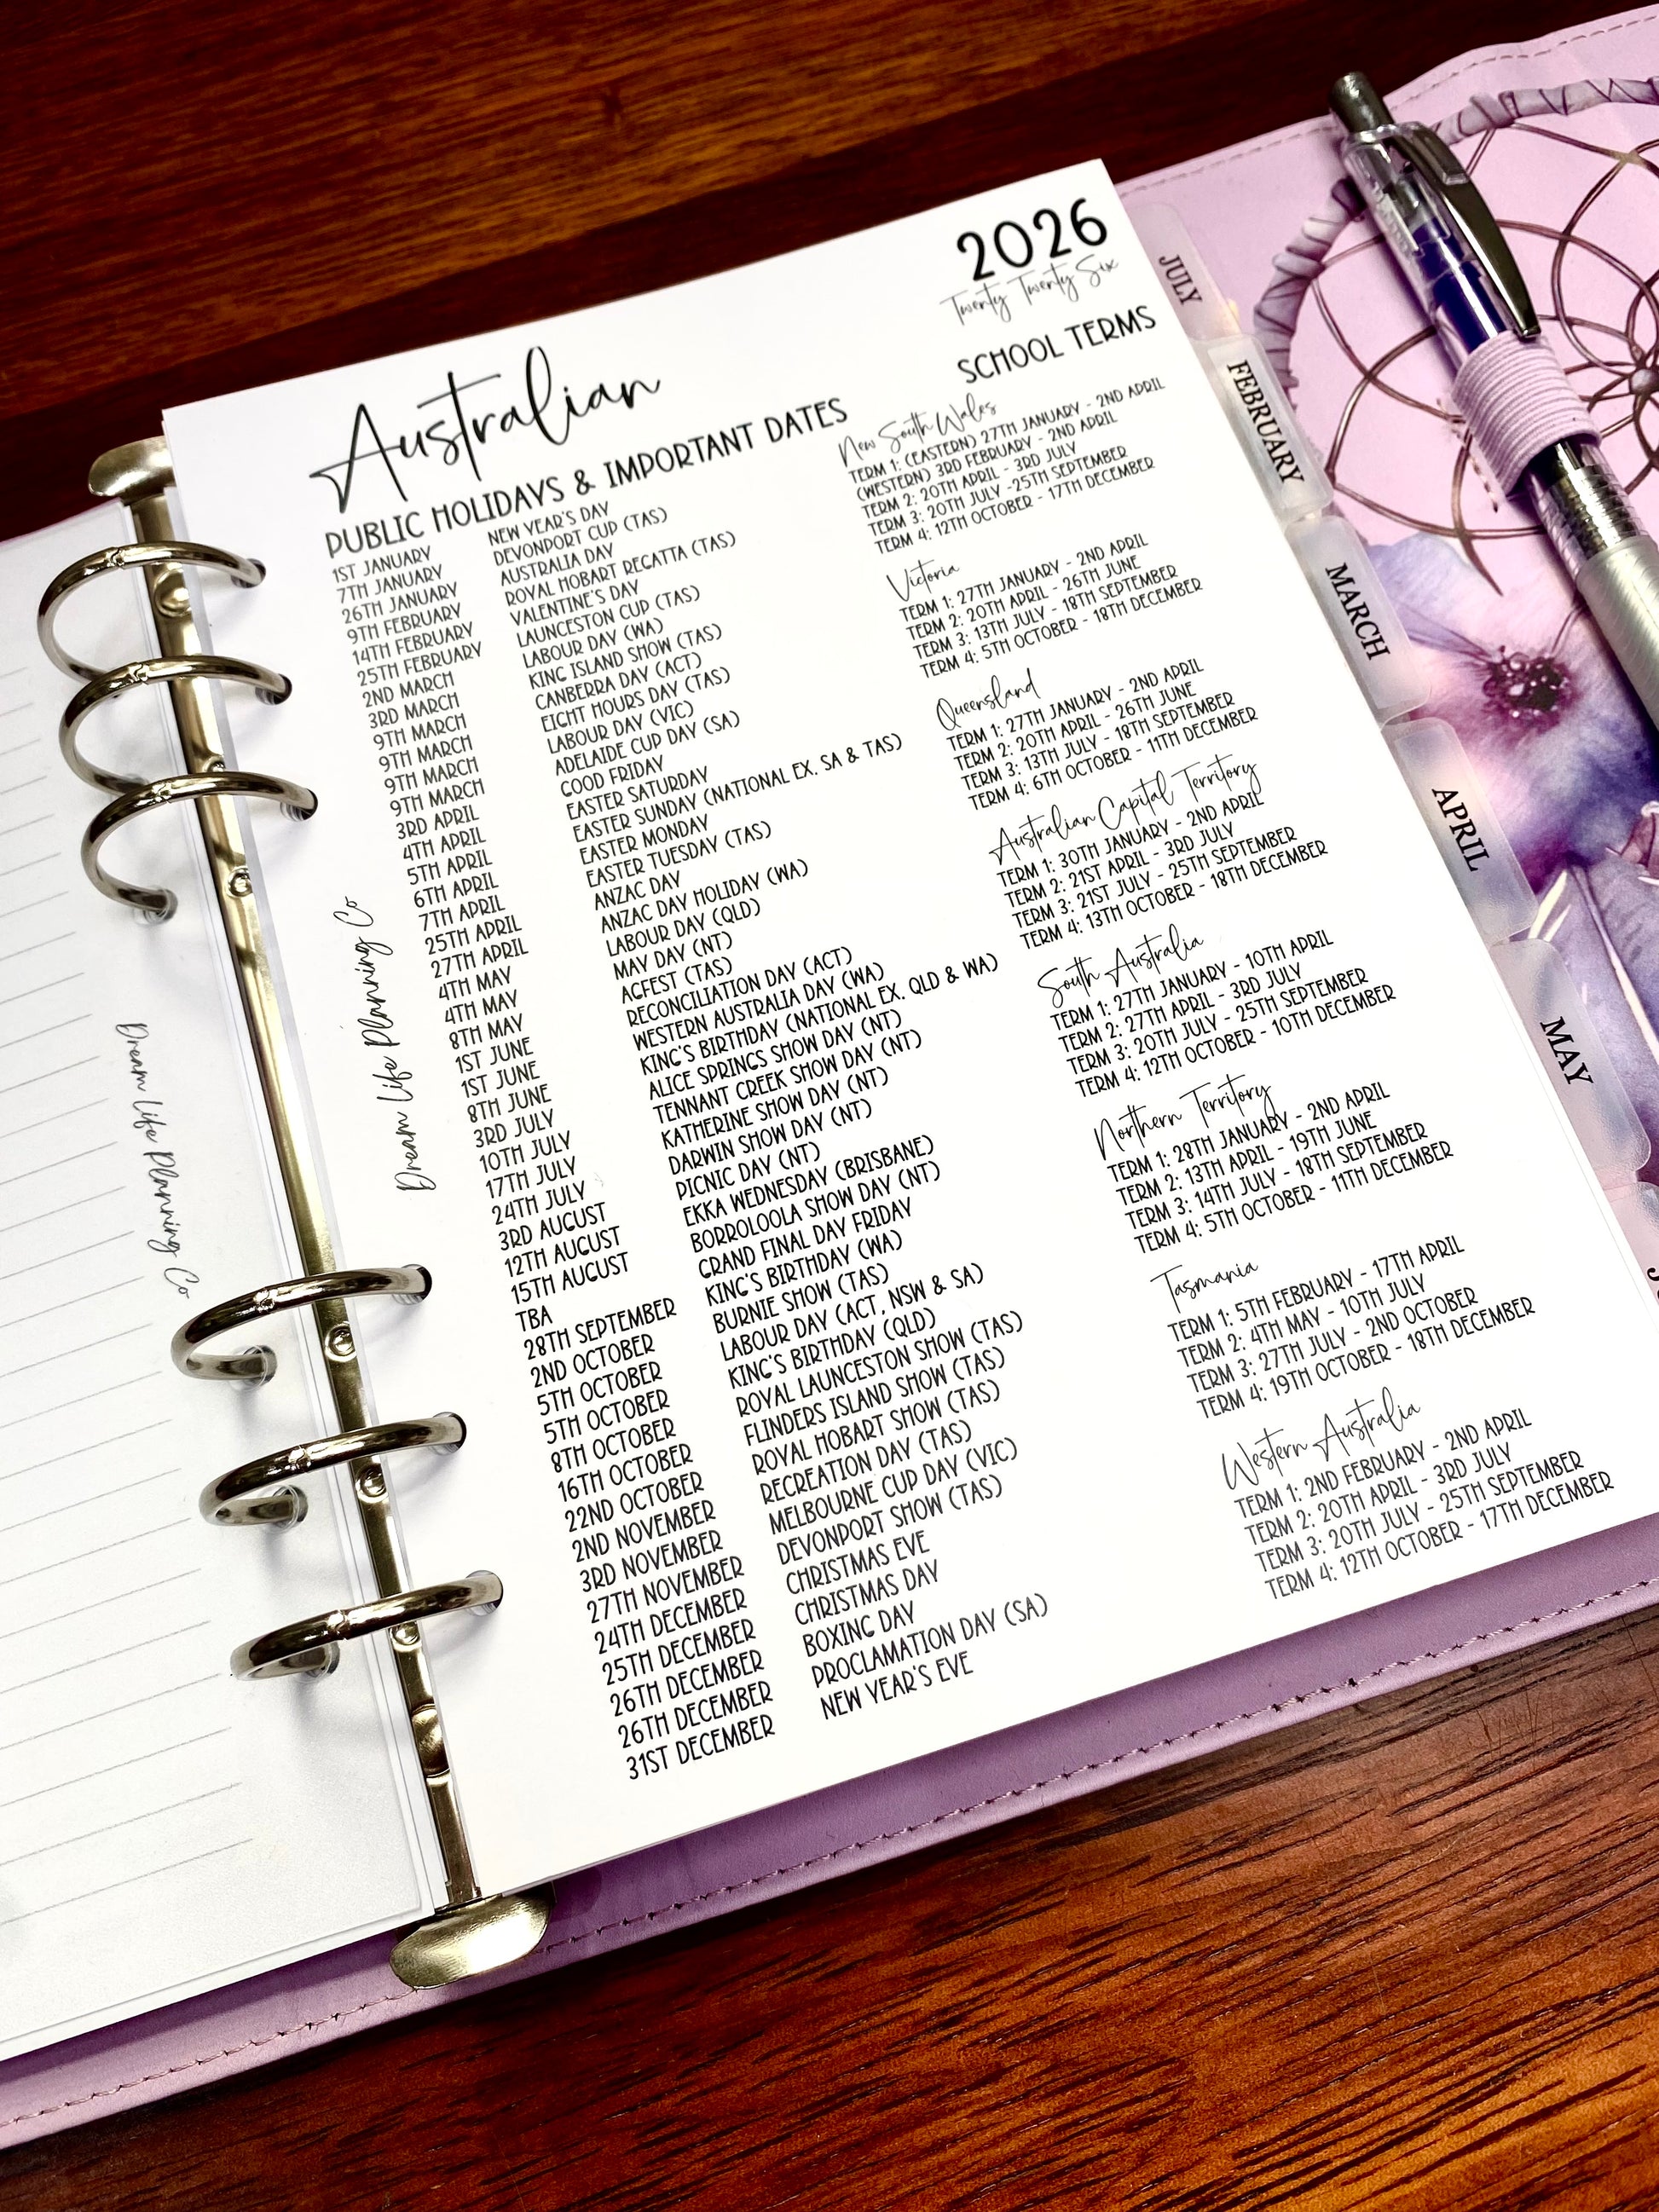 2026
Twenty Twenty Six
Australian
PUBLIC HOLIDAYS & IMPORTANT DATES
1ST JANUARY NEW YEAR'S DAY
7TH JANUARY DEVONPORT CUP (TAS)
26TH JANUARY AUSTRALIA DAY
9TH FEBRUARY ROYAL HOBART REGATTA (TAS)
14TH FEBRUARY VALENTINE'S DAY
25TH FEBRUARY LAUNCESTON CUP (TAS)
2ND MARCH LABOUR DAY (WA)
3RD MARCH KING ISLAND SHOW (TAS)
9TH MARCH CANBERRA DAY (ACT)
9TH MARCH EIGHT HOURS DAY (TAS)
9TH MARCH LABOUR DAY (VIC)
9TH MARCH ADELAIDE CUP DAY (SA)
3RD APRIL GOOD FRIDAY
4TH APRIL EASTER SATURDAY
5TH APRIL EASTER SUNDAY (NATIONAL EX. SA & TAS)
6TH APRIL EASTER MONDAY
7TH APRIL EASTER TUESDAY (TAS)
25TH APRIL ANZAC DAY
27TH APRIL ANZAC DAY HOLIDAY (WA)
4TH MAY LABOUR DAY (QLD)
4TH MAY MAY DAY (NT)
8TH MAY AGFEST (TAS)
1ST JUNE RECONCILIATION DAY (ACT)
1ST JUNE WESTERN AUSTRALIA DAY (WA)
8TH JUNE KING'S BIRTHDAY (NATIONAL EX. QLD & WA)
3RD JULY ALICE SPRINGS SHOW DAY (NT)
10TH JULY TENNANT CREEK SHOW DAY (NT)
17TH JULY KATHERINE SHOW DAY (NT)
24TH JULY DARWIN SHOW DAY (NT)
3RD AUGUST PICNIC DAY (NT)
12TH AUGUST EKKA WEDNESDAY (BRISBANE)
15TH AUGUST BORROLOOLA SHOW DAY (NT)
TBA GRAND FINAL DAY FRIDAY
28TH SEPTEMBER KING'S BIRTHDAY (WA)
2ND OCTOBER BURNIE SHOW (TAS)
5TH OCTOBER LABOUR DAY (ACT, NSW & SA)
5TH OCTOBER KING'S BIRTHDAY (QLD)
8TH OCTOBER ROYAL LAUNCESTON SHOW (TAS)
16TH OCTOBER FLINDERS ISLAND SHOW (TAS)
22ND OCTOBER ROYAL HOBART SHOW (TAS)
2ND NOVEMBER RECREATION DAY (TAS)
3RD NOVEMBER MELBOURNE CUP DAY (VIC)
27TH NOVEMBER DEVONPORT SHOW (TAS)
24TH DECEMBER CHRISTMAS EVE
25TH DECEMBER CHRISTMAS DAY
26TH DECEMBER BOXING DAY
26TH DECEMBER PROCLAMATION DAY (SA)
31ST DECEMBER NEW YEAR'S EVE
SCHOOL TERMS
New South Wales
TERM 1: (EASTERN) 27TH JANUARY - 2ND APRIL
(WESTERN) 3RD FEBRUARY - 2ND APRIL
TERM 2: 20TH APRIL - 3RD JULY
TERM 3: 20TH JULY -25TH SEPTEMBER
TERM 4: 12TH OCTOBER - 17TH DECEMBER
Victoria
TERM 1: 27TH JANUARY - 2ND APRIL
TERM 2: 20TH APRIL - 26TH JUNE
TERM 3: 13TH JULY - 18TH SEPTEMBER
TERM 4: 5TH OCTOBER - 18TH DECEMBER
Queensland
TERM 1: 27TH JANUARY - 2ND APRIL
TERM 2: 20TH APRIL - 26TH JUNE
TERM 3: 13TH JULY - 18TH SEPTEMBER
TERM 4: 6TH OCTOBER - 11TH DECEMBER
Australian Capital Territory
TERM 1: 30TH JANUARY - 2ND APRIL
TERM 2: 21ST APRIL - 3RD JULY
TERM 3: 21ST JULY - 25TH SEPTEMBER
TERM 4: 13TH OCTOBER - 18TH DECEMBER
South Australia
TERM 1: 27TH JANUARY - 10TH APRIL
TERM 2: 27TH APRIL - 3RD JULY
TERM 3: 20TH JULY - 25TH SEPTEMBER
TERM 4: 12TH OCTOBER - 10TH DECEMBER
Northern Territory
TERM 1: 28TH JANUARY - 2ND APRIL
TERM 2: 13TH APRIL - 19TH JUNE
TERM 3: 14TH JULY - 18TH SEPTEMBER
TERM 4: 5TH OCTOBER - 11TH DECEMBER
Tasmania
TERM 1: 5TH FEBRUARY - 17TH APRIL
TERM 2: 4TH MAY - 10TH JULY
TERM 3: 27TH JULY - 2ND OCTOBER
TERM 4: 19TH OCTOBER - 18TH DECEMBER
Western Australia
TERM 1: 2ND FEBRUARY - 2ND APRIL
TERM 2: 20TH APRIL - 3RD JULY
TERM 3: 20TH JULY - 25TH SEPTEMBER
TERM 4: 12TH OCTOBER - 17TH DECEMBER
Dream Life Planning Co
Dream Life Planning Co
JULY
FEBRUARY
MARCH
APRIL
MAY